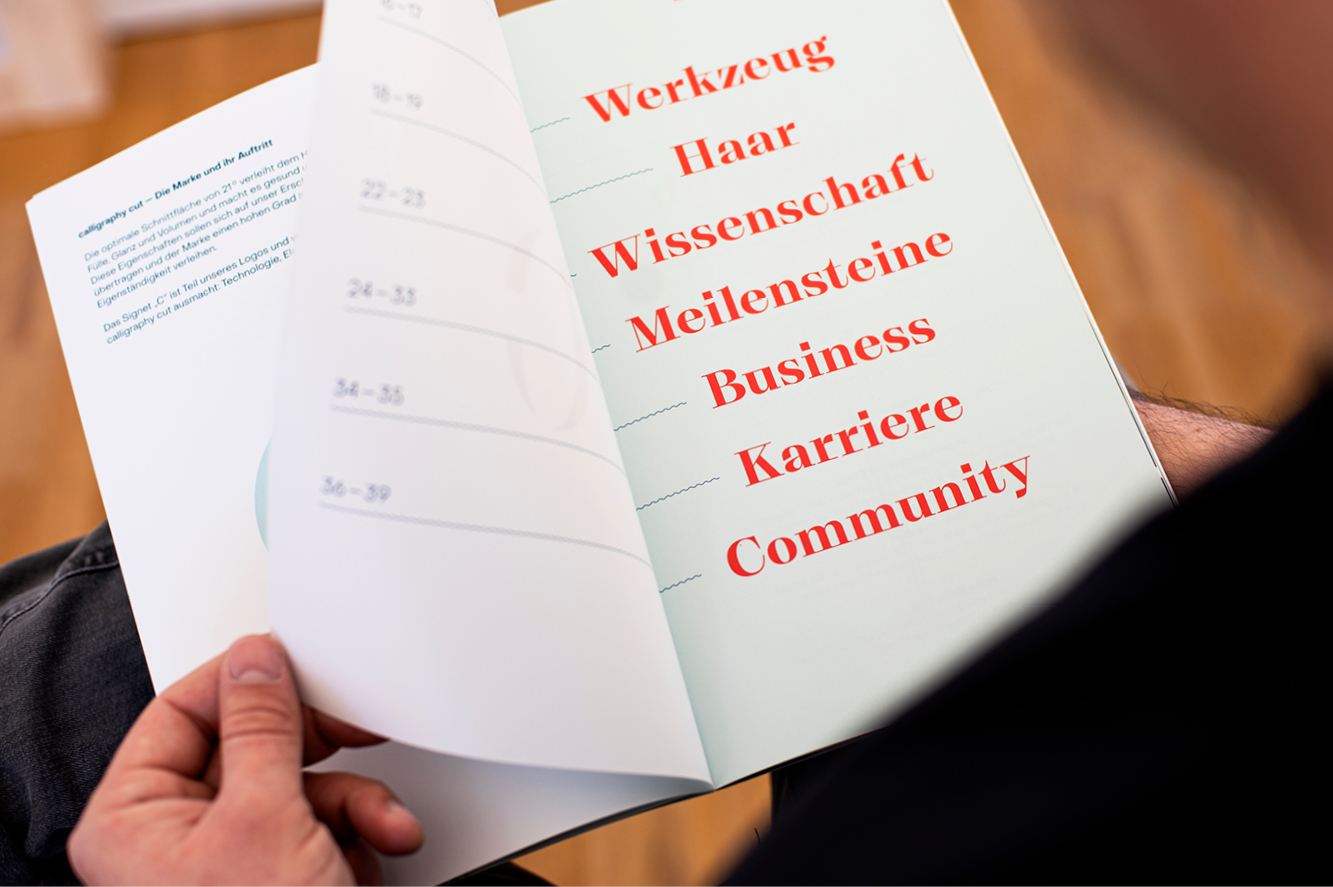 calligraphy cut – Die Marke und ihr Auftritt
Die optimale Schnittfläche von 21° verleiht dem
Fülle, Glanz und Volumen und macht es gesund
Diese Eigenschaften sollen sich auf unser
übertragen und der Marke einen hohen Grad
Eigenständigkeit verleihen.
Das Signet „C“ ist Teil unseres Logos und
calligraphy cut ausmacht: Technologie,
16–17
18–19
22–23
24–33
34–35
36–39
Werkzeug
Haar
Wissenschaft
Meilensteine
Business
Karriere
Community